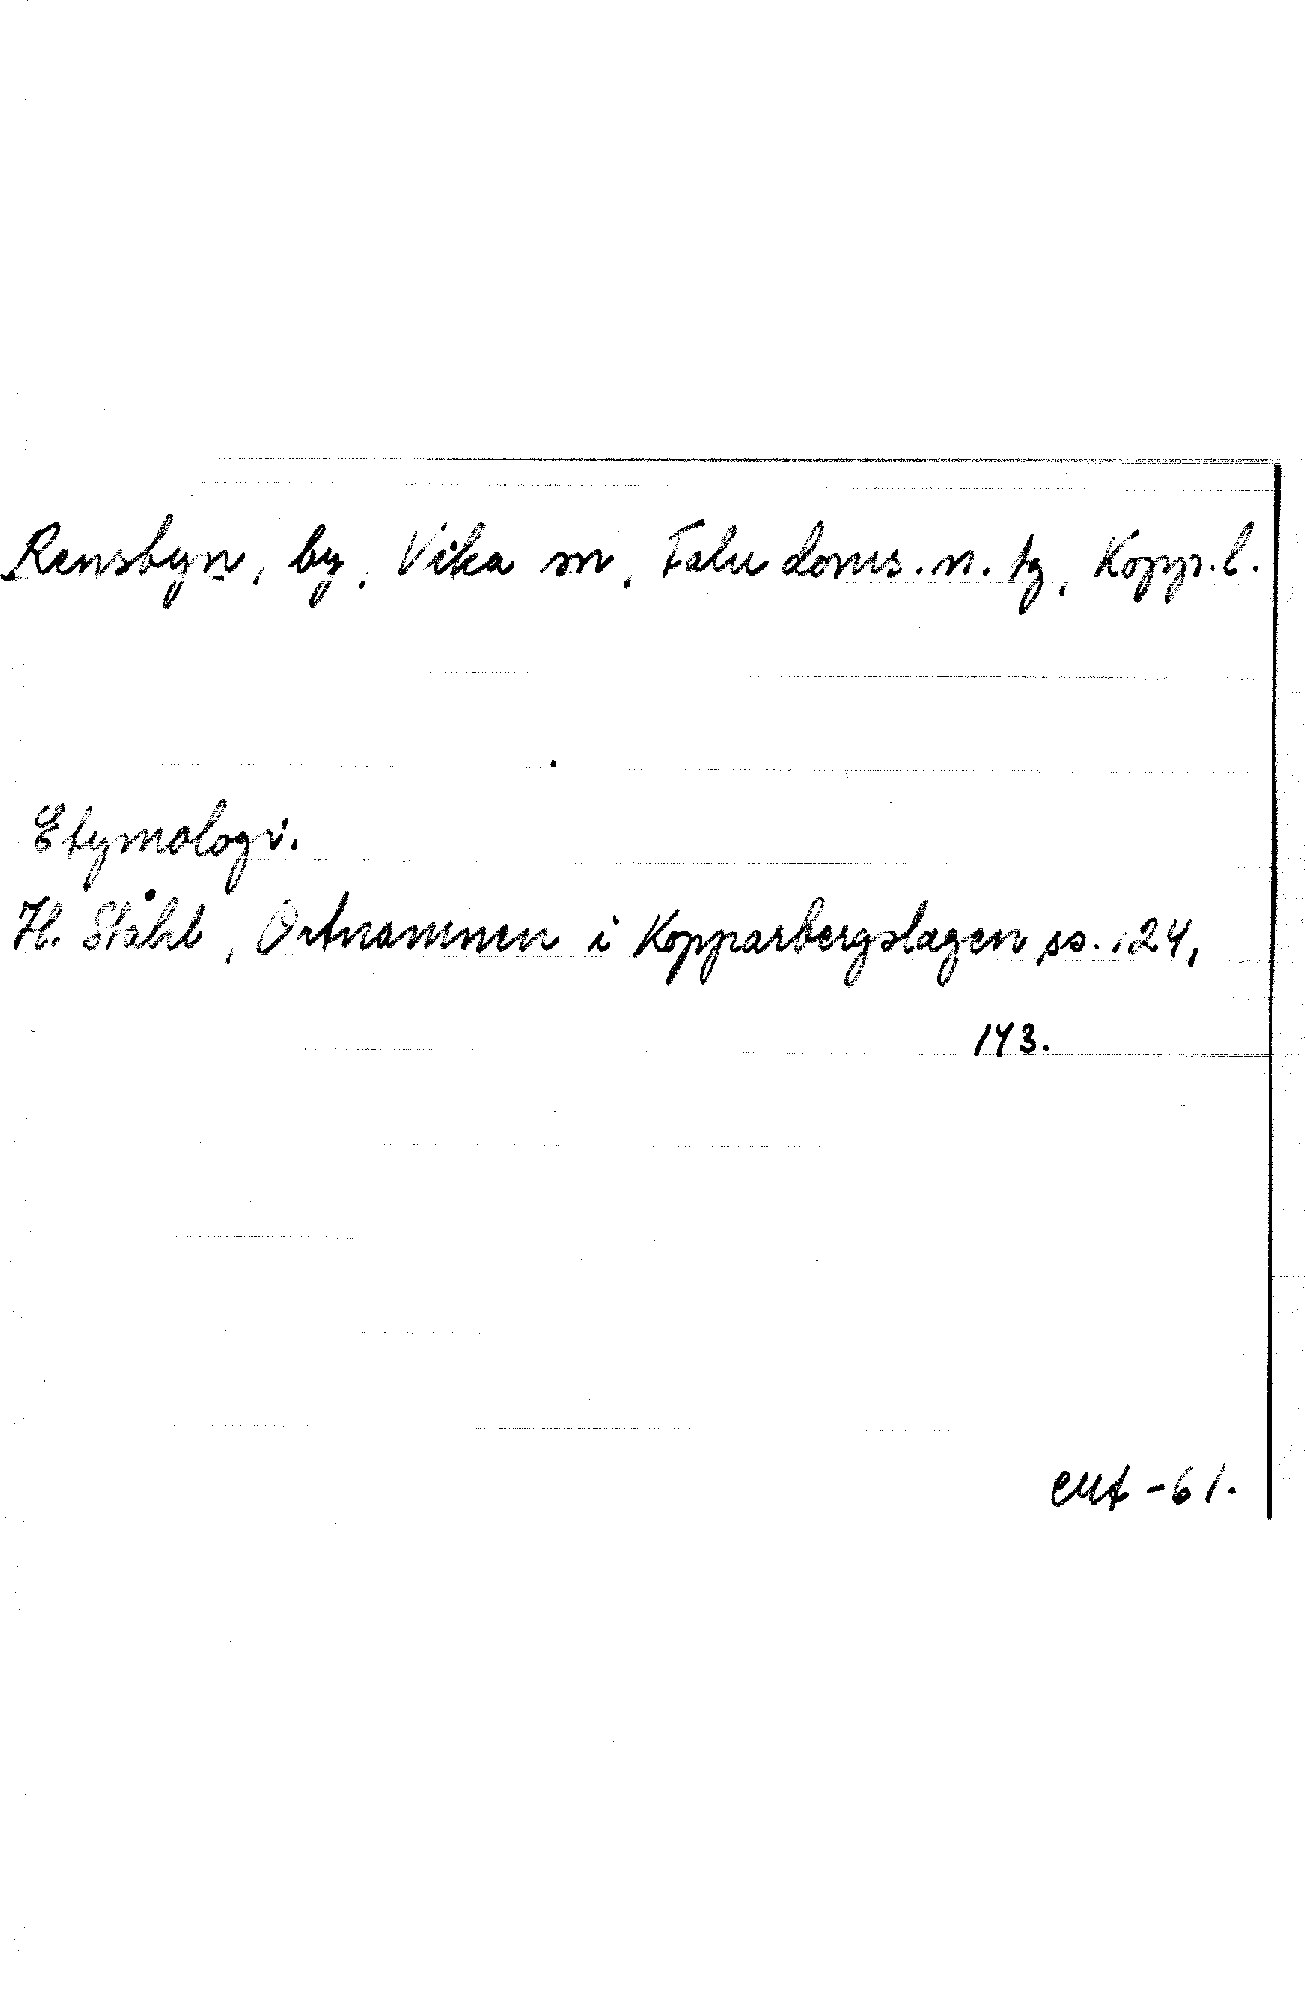 Rensbyn, by, Vika sn, Falu doms. n. tg, Kopp. l.
Etymologi.
H. Ståhl, Ortnamnen i Kopparbergslagen ss. 124,
143.
-61.